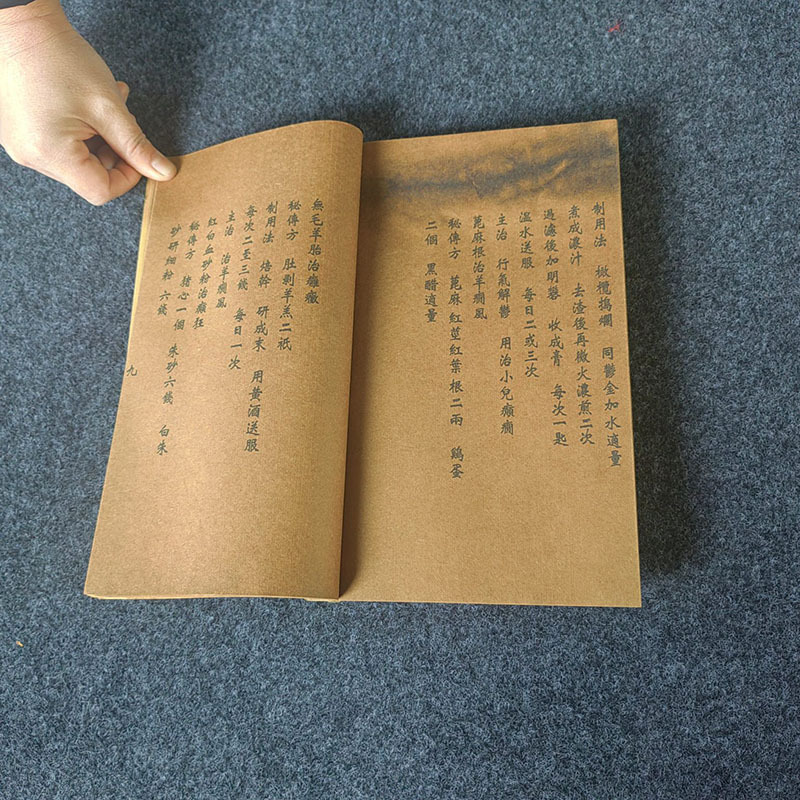 制用法　橄欖搗爛　同鬱金加水適量
煮成濃汁　去渣後再微火濃煎二次
過濾後加明礬　收成膏　每次一匙
溫水送服　每日二或三次
主治　行氣解鬱　用治小兒癲癇
萞麻根治羊癇風
秘傳方　萞麻紅莖紅葉根二兩　鷄蛋
二個　黑醋適量
無毛羊胎治癱癥
秘傳方　肚剝羊羔二祇
制用法　焙幹　研成末　用黃酒送服
每次二至三錢　每日一次
主治　治羊癇風
紅白血砂粉治癲狂
秘傳方　豬心一個　朱砂六錢　白朱
砂研細粉　六錢
九